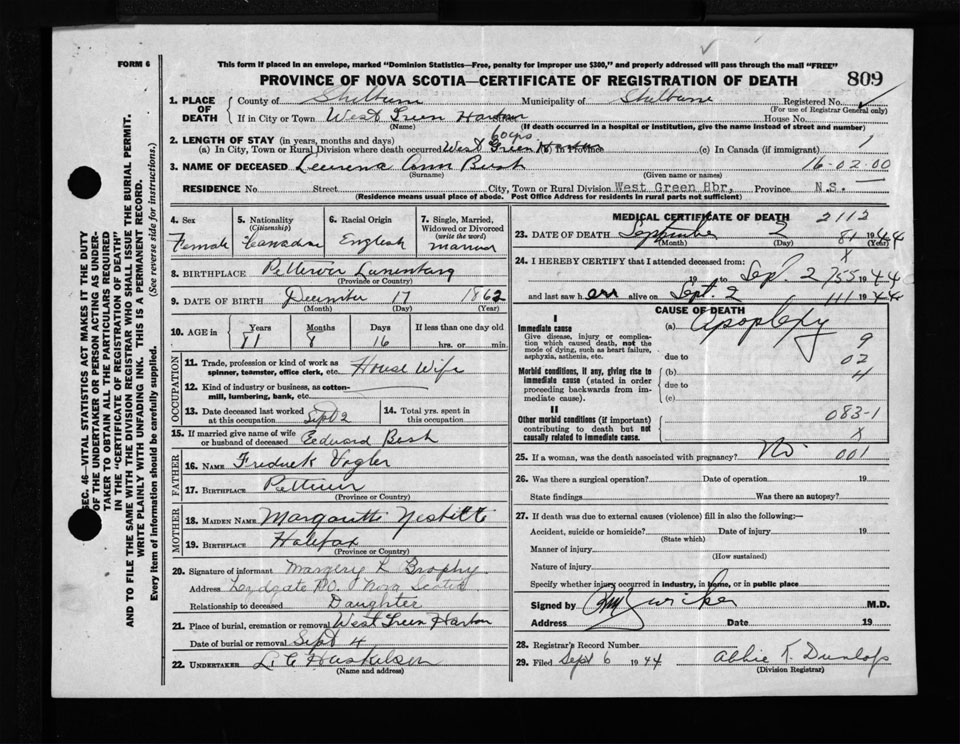 FORM 6
This form if placed in an envelope, marked "Dominion Statistics—Free, penalty for improper use $300," and properly addressed will pass through the mail "FREE"
PROVINCE OF NOVA SCOTIA—CERTIFICATE OF REGISTRATION OF DEATH 809
SEC. 46—VITAL STATISTICS ACT MAKES IT THE DUTY
OF THE UNDERTAKER OR PERSON ACTING AS UNDER-
TAKER TO OBTAIN ALL THE PARTICULARS REQUIRED
IN THE "CERTIFICATE OF REGISTRATION OF DEATH"
AND TO FILE THE SAME WITH THE DIVISION REGISTRAR WHO SHALL ISSUE THE BURIAL PERMIT.
WRITE PLAINLY WITH UNFADING INK. THIS IS A PERMANENT RECORD.
Every item of information should be carefully supplied. (See reverse side for instructions.)
1. PLACE OF DEATH County of Shelburne Municipality of Shelburne Registered No.
(For use of Registrar General only)
If in City or Town West Green Harbor Street House No.
(Name) (If death occurred in a hospital or institution, give the name instead of street and number)
2. LENGTH OF STAY (in years, months and days) 60 yrs
(a) In City, Town or Rural Division where death occurred West Green Harbor (b) In Province (c) In Canada (if immigrant) 1
3. NAME OF DECEASED Ann 16-02-00
(Surname) (Given name or names)
RESIDENCE No. Street City, Town or Rural Division West Green Hbr, Province N.S.
(Residence means usual place of abode. Post Office Address for residents in rural parts not sufficient)
4. Sex Female
5. Nationality (Citizenship) Canadian
6. Racial Origin English
7. Single, Married, Widowed or Divorced (write the word) married
8. BIRTHPLACE Lunenburg
(Province or Country)
9. DATE OF BIRTH December 17 1862
(Month) (Day) (Year)
10. AGE in Years Months Days If less than one day old
81 8 16 hrs. or min.
OCCUPATION
11. Trade, profession or kind of work as spinner, teamster, office clerk, etc. House Wife
12. Kind of industry or business, as cotton-mill, lumbering, bank, etc.
13. Date deceased last worked at this occupation Sept 2
14. Total yrs. spent in this occupation
15. If married give name of wife or husband of deceased Edward
FATHER
16. NAME Fredrick Vogler
17. BIRTHPLACE
(Province or Country)
MOTHER
18. MAIDEN NAME
19. BIRTHPLACE Halifax
(Province or Country)
20. Signature of informant Margery R Brophy
Address Lydgate P.O. Nova Scotia
Relationship to deceased Daughter
21. Place of burial, cremation or removal West Green Harbor
Date of burial or removal Sept 4
22. UNDERTAKER L. C.
(Name and address)
MEDICAL CERTIFICATE OF DEATH 2112
23. DATE OF DEATH September 2 81 1944
(Month) (Day) (Year)
24. I HEREBY CERTIFY that I attended deceased from: X
19 to Sep. 2 755 1944
and last saw her alive on Sept. 2 111 1944
CAUSE OF DEATH
I
Immediate cause (a) Apoplexy
Give disease, injury or complication which caused death, not the mode of dying, such as heart failure, asphyxia, asthenia, etc.
due to
9
02
4
Morbid conditions, if any, giving rise to immediate cause (stated in order proceeding backwards from immediate cause).
(b)
due to
(c)
II
Other morbid conditions (if important) contributing to death but not causally related to immediate cause.
083-1
X
25. If a woman, was the death associated with pregnancy? No 001
26. Was there a surgical operation? Date of operation 19
State findings Was there an autopsy?
27. If death was due to external causes (violence) fill in also the following:—
Accident, suicide or homicide? Date of injury 19
(State which)
Manner of injury
(How sustained)
Nature of injury
Specify whether injury occurred in industry, in home, or in public place
Signed by Zwicker M.D.
Address Date 19
28. Registrar's Record Number
29. Filed Sept 6 1944 Abbie K. Dunlop
(Division Registrar)